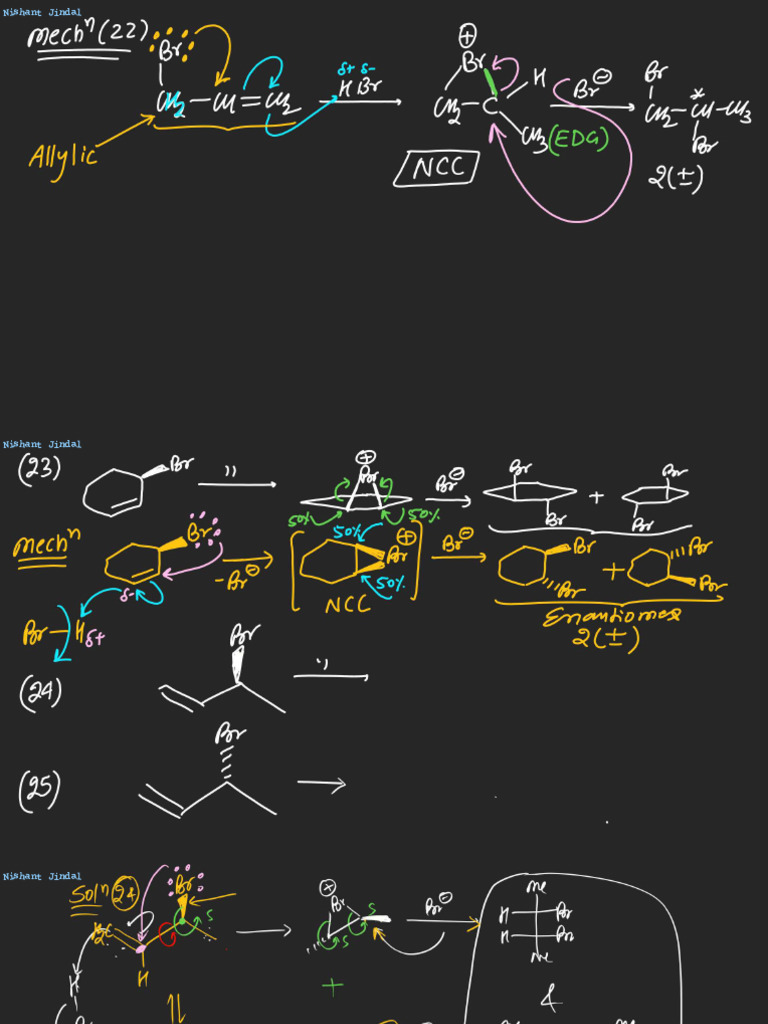 Nishant Jindal
mechⁿ(22)
Br
CH₂—CH=CH₂
Allylic
δ+ δ-
H Br
⊕
Br
CH₂—C
H
CH₃(EDG)
NCC
Br⊖
Br
CH₂—*CH—CH₃
Br
2(±)
Nishant Jindal
(23)
Br
"
⊕
Br
50% 50%
Br⊖
Br
Br
+
Br
Br
mechⁿ
Br
δ-
-Br⊖
50%
Br⊕
50%
NCC
Br⊖
Br
Br
+
Br
Br
Enantiomer
2(±)
Br—H δ+
(24)
Br
"
(25)
Br
Nishant Jindal
Solⁿ 24
Br
S
H₂C
H
H
⊕
Br
S
S
+
Br⊖
me
H Br
H Br
me
&